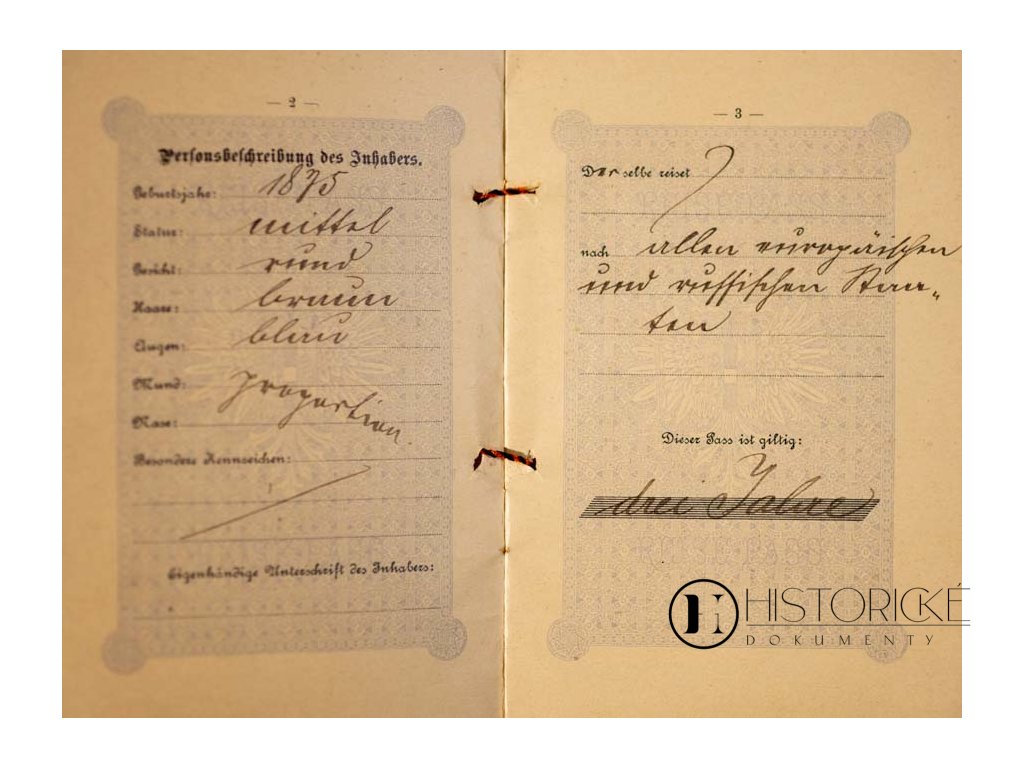 — 2 —
Personsbeschreibung des Inhabers.
Geburtsjahr: 1875
Statur: mittel
Gesicht: rund
Haare: braun
Augen: blau
Mund: proportion.
Nase:
Besondere Kennzeichen:
Eigenhändige Unterschrift des Inhabers:
— 3 —
Derselbe reiset
nach allen europäischen
und russischen Staa„
ten
Dieser Pass ist giltig:
drei Jahre
HISTORICKÉ
DOKUMENTY